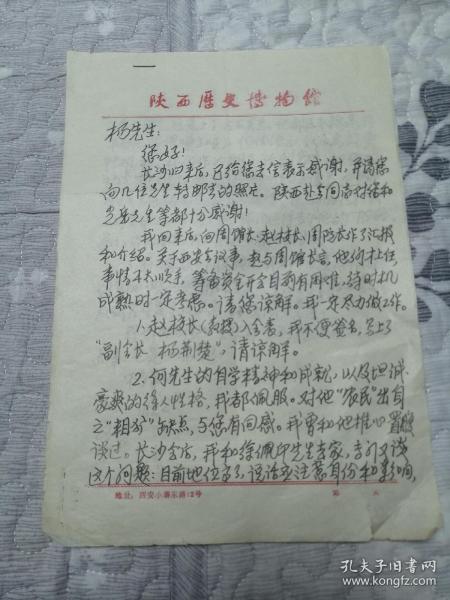 陕西历史博物馆
杨先生：
您好！
长沙归来后，已给您去信表示感谢，并请您
向几位先生转邮寄的照片。陕西赴与同志对您和
先生等都十分感谢！
我回来后，向周馆长、赵校长、周院长作了汇报
和介绍。关于西安会议事，赵与周馆长言，他们才上任，
事情不大顺手，筹备资金开会目前有困难，待时机
成熟时一定考虑。请您谅解。我一定尽力做工作。
1. 赵校长（教授）入会表，我不便签名，写上了
“副会长 杨荆楚”，请谅解。
2. 何先生的自学精神和成就，以及坦诚
豪爽的待人性格，我都佩服。对他“农民”出自
之“粗犷”缺点，与您有同感。我曾和他推心置腹
谈过。长沙会后，我和徐佩印先生去家，专门又谈
这个问题：目前地位高了，说话应注意身份和影响，
地址：西安小寨东路72号
第 页
孔夫子旧书网
www.kongfz.com